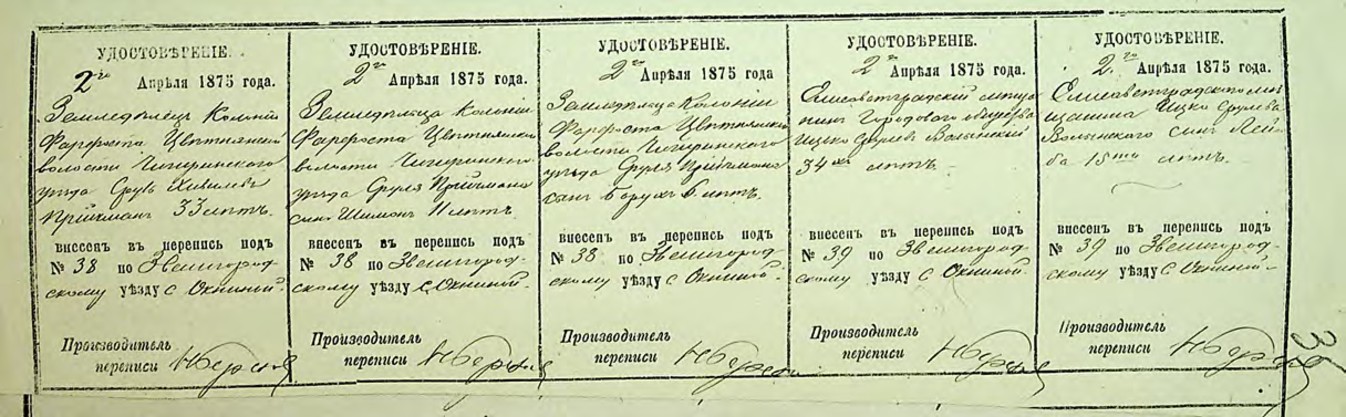 УДОСТОВѢРЕНІЕ.
2го Апрѣля 1875 года.
Земледѣлецъ Колоніи
Цвѣтнянской
волости Чигиринскаго
уѣзда Сруль
33 лѣтъ.
внесенъ въ перепись подъ
№ 38 по Звенигород-
скому уѣзду с. Окниной.
Производитель
переписи
УДОСТОВѢРЕНІЕ.
2го Апрѣля 1875 года.
Земледѣльца Колоніи
Цвѣтнянской
волости Чигиринскаго
уѣзда Сруля
сынъ Шимонъ 11 лѣтъ.
внесенъ въ перепись подъ
№ 38 по Звенигород-
скому уѣзду с. Окниной.
Производитель
переписи
УДОСТОВѢРЕНІЕ.
2го Апрѣля 1875 года
Земледѣльца Колоніи
Цвѣтнянской
волости Чигиринскаго
уѣзда Сруля
сынъ Борухъ 6 лѣтъ.
внесенъ въ перепись подъ
№ 38 по Звенигород-
скому уѣзду с. Окниной.
Производитель
переписи
УДОСТОВѢРЕНІЕ.
2го Апрѣля 1875 года.
Елисаветградскій мѣща-
нинъ Городоваго общества
Ицко Срулевъ Волынскій
34хъ лѣтъ.
внесенъ въ перепись подъ
№ 39 по Звенигород-
скому уѣзду с. Окниной.
Производитель
переписи
УДОСТОВѢРЕНІЕ.
2го Апрѣля 1875 года.
Елисаветградскаго мѣ-
щанина Ицко Срулева
Волынскаго сынъ Лей-
ба 15ти лѣтъ.
внесенъ въ перепись подъ
№ 39 по Звенигород-
скому уѣзду с. Окниной.
Производитель
переписи